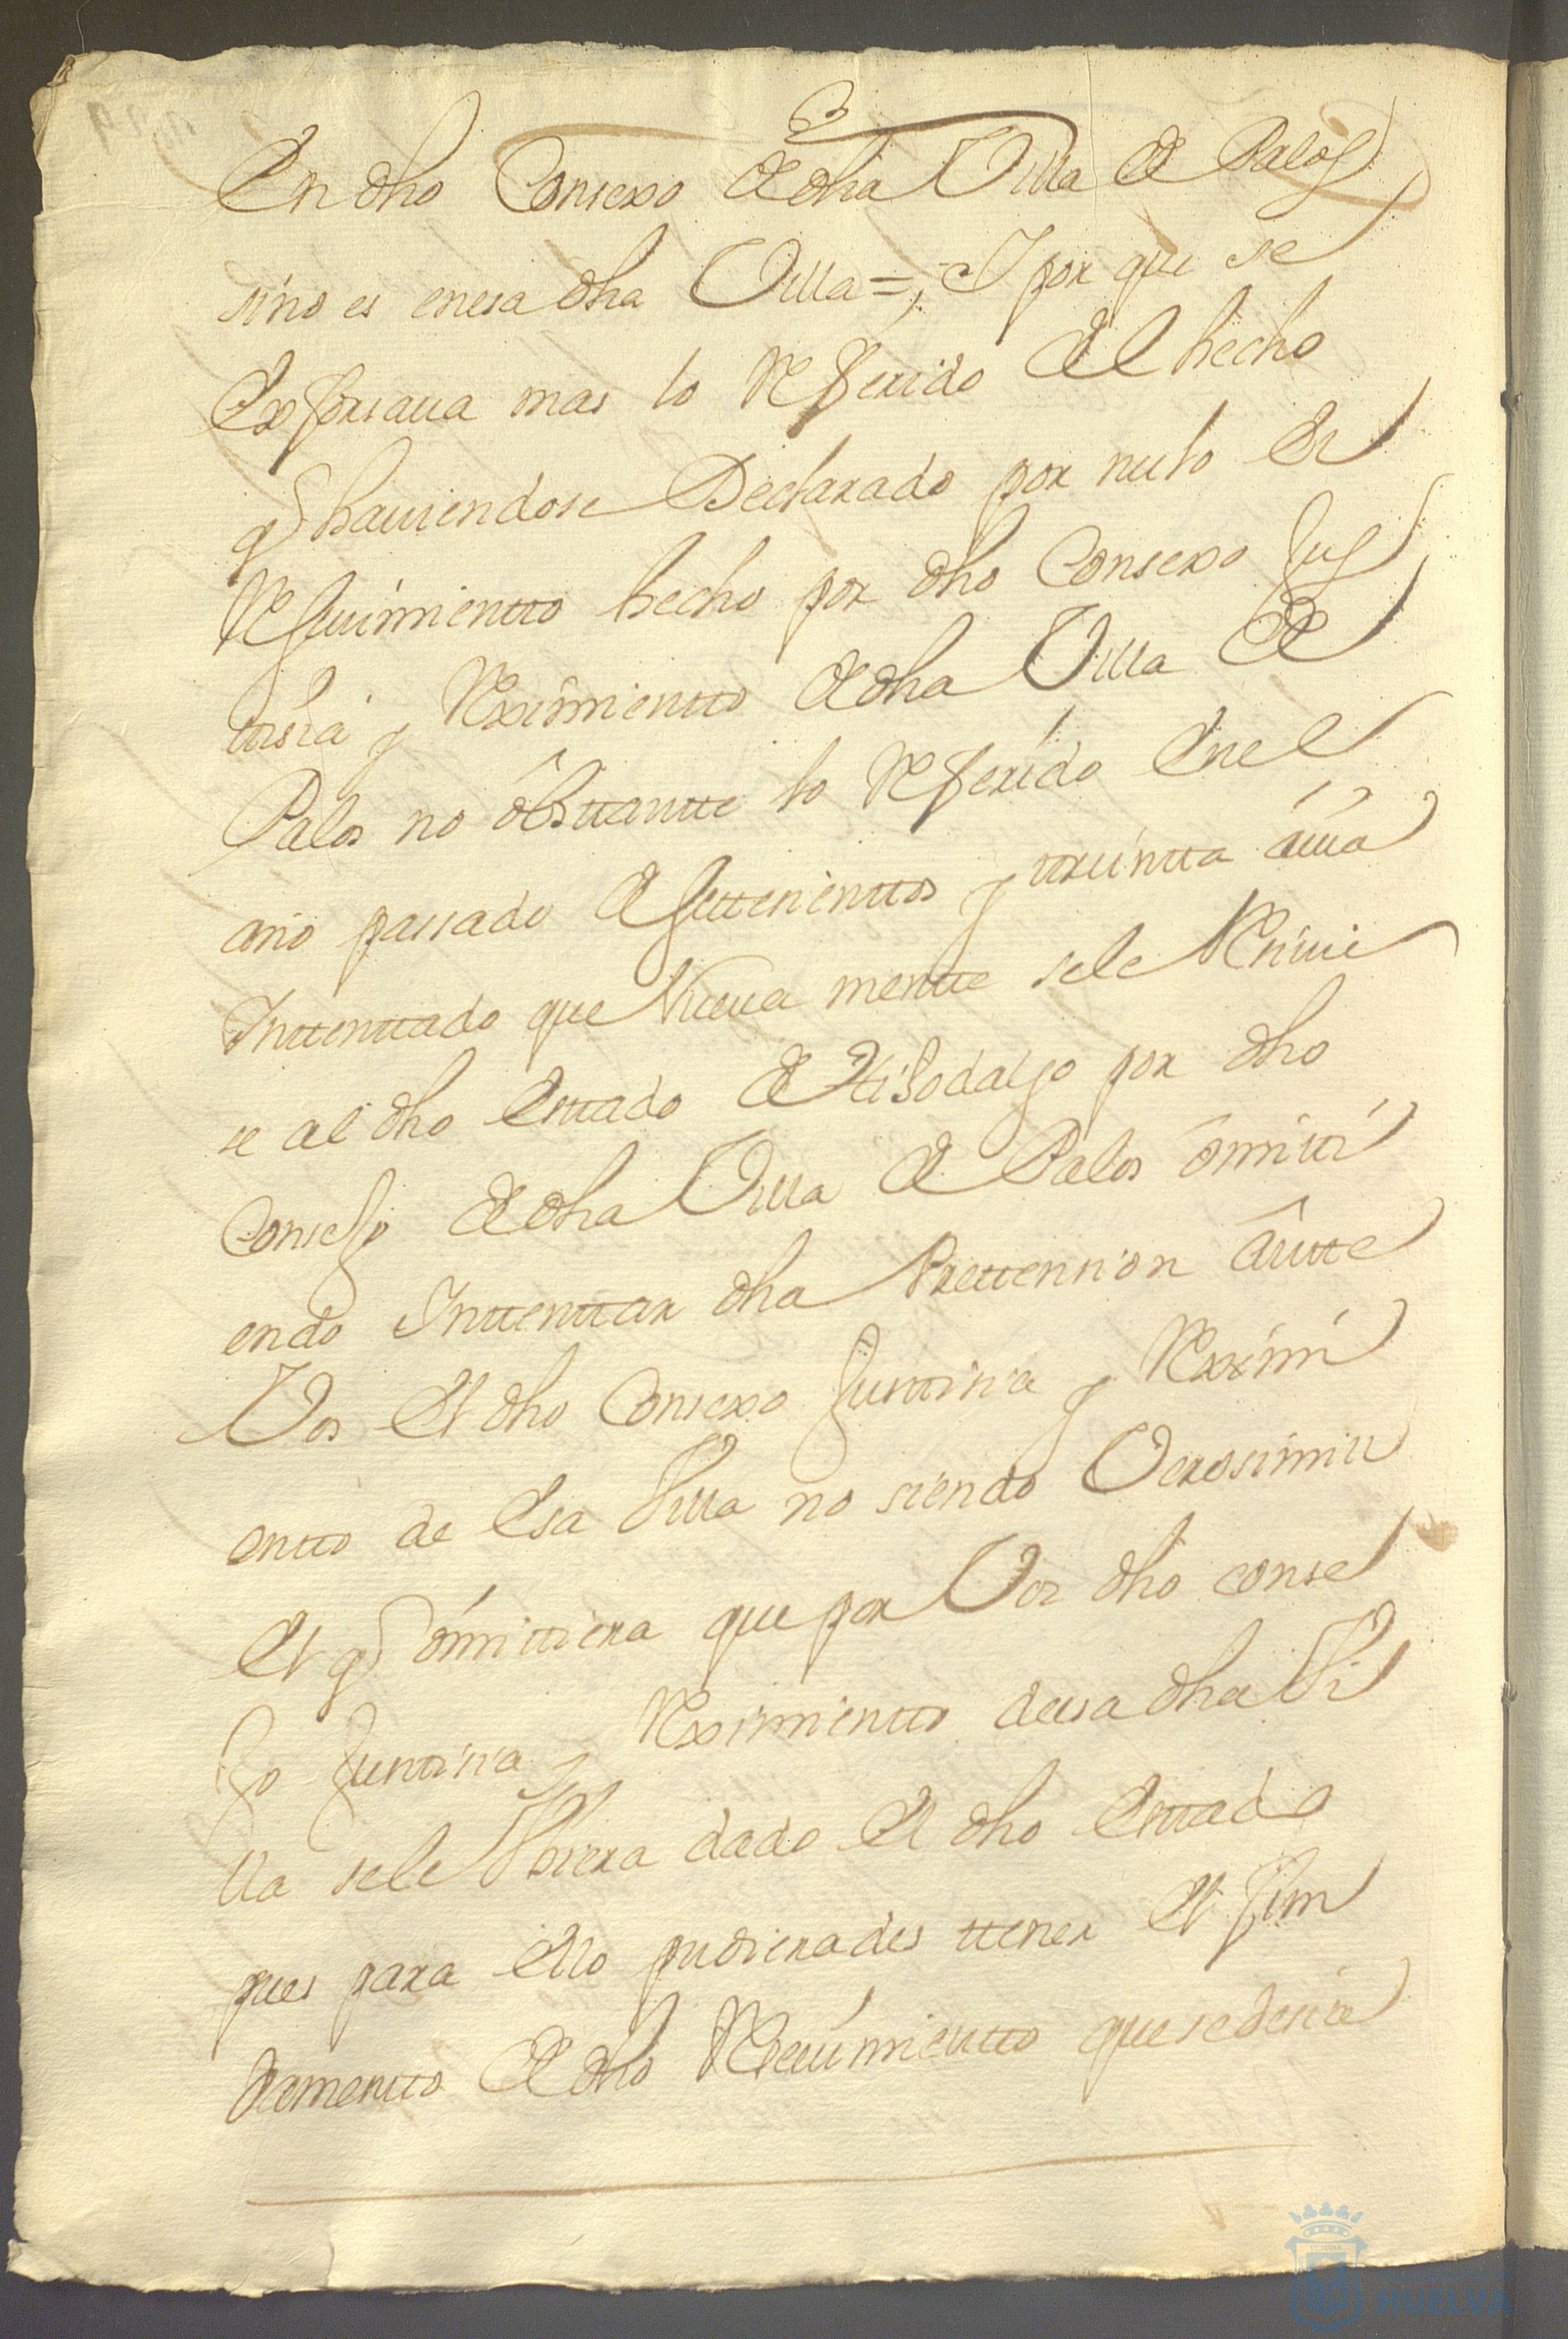 En dho Consexo de dha Villa de Palos
sino es en esa dha Villa =, Y por que se
Exforsaua mas lo Referido del hecho
q hauiendose Declarado por nulo el
Resiuimientto hecho por dho Consexo Jus
ttisia y Reximientto de dha Villa de
Palos no obsttantte lo Referido En el
año passado de settesienttos y treintta auia
Inttenttado que Nueua mentte se le Reciuie
se al dho Esttado de Hijodalgo por dho
Consejo de dha Villa de Palos omitti
endo Inttenttar dha Prettension antte
Vos El dho Consexo Justtisia y Reximi
entto de Esa Villa no siendo Verosimil
El q omittiera que por Vos dho conse
Jo Justtisia y Reximientto de esa dha Vi
lla se le Vbiera dado El dho Esttado
pues para Ello pudierades ttener El fun
damentto de dho Resiuimientto que se desia
HUELVA